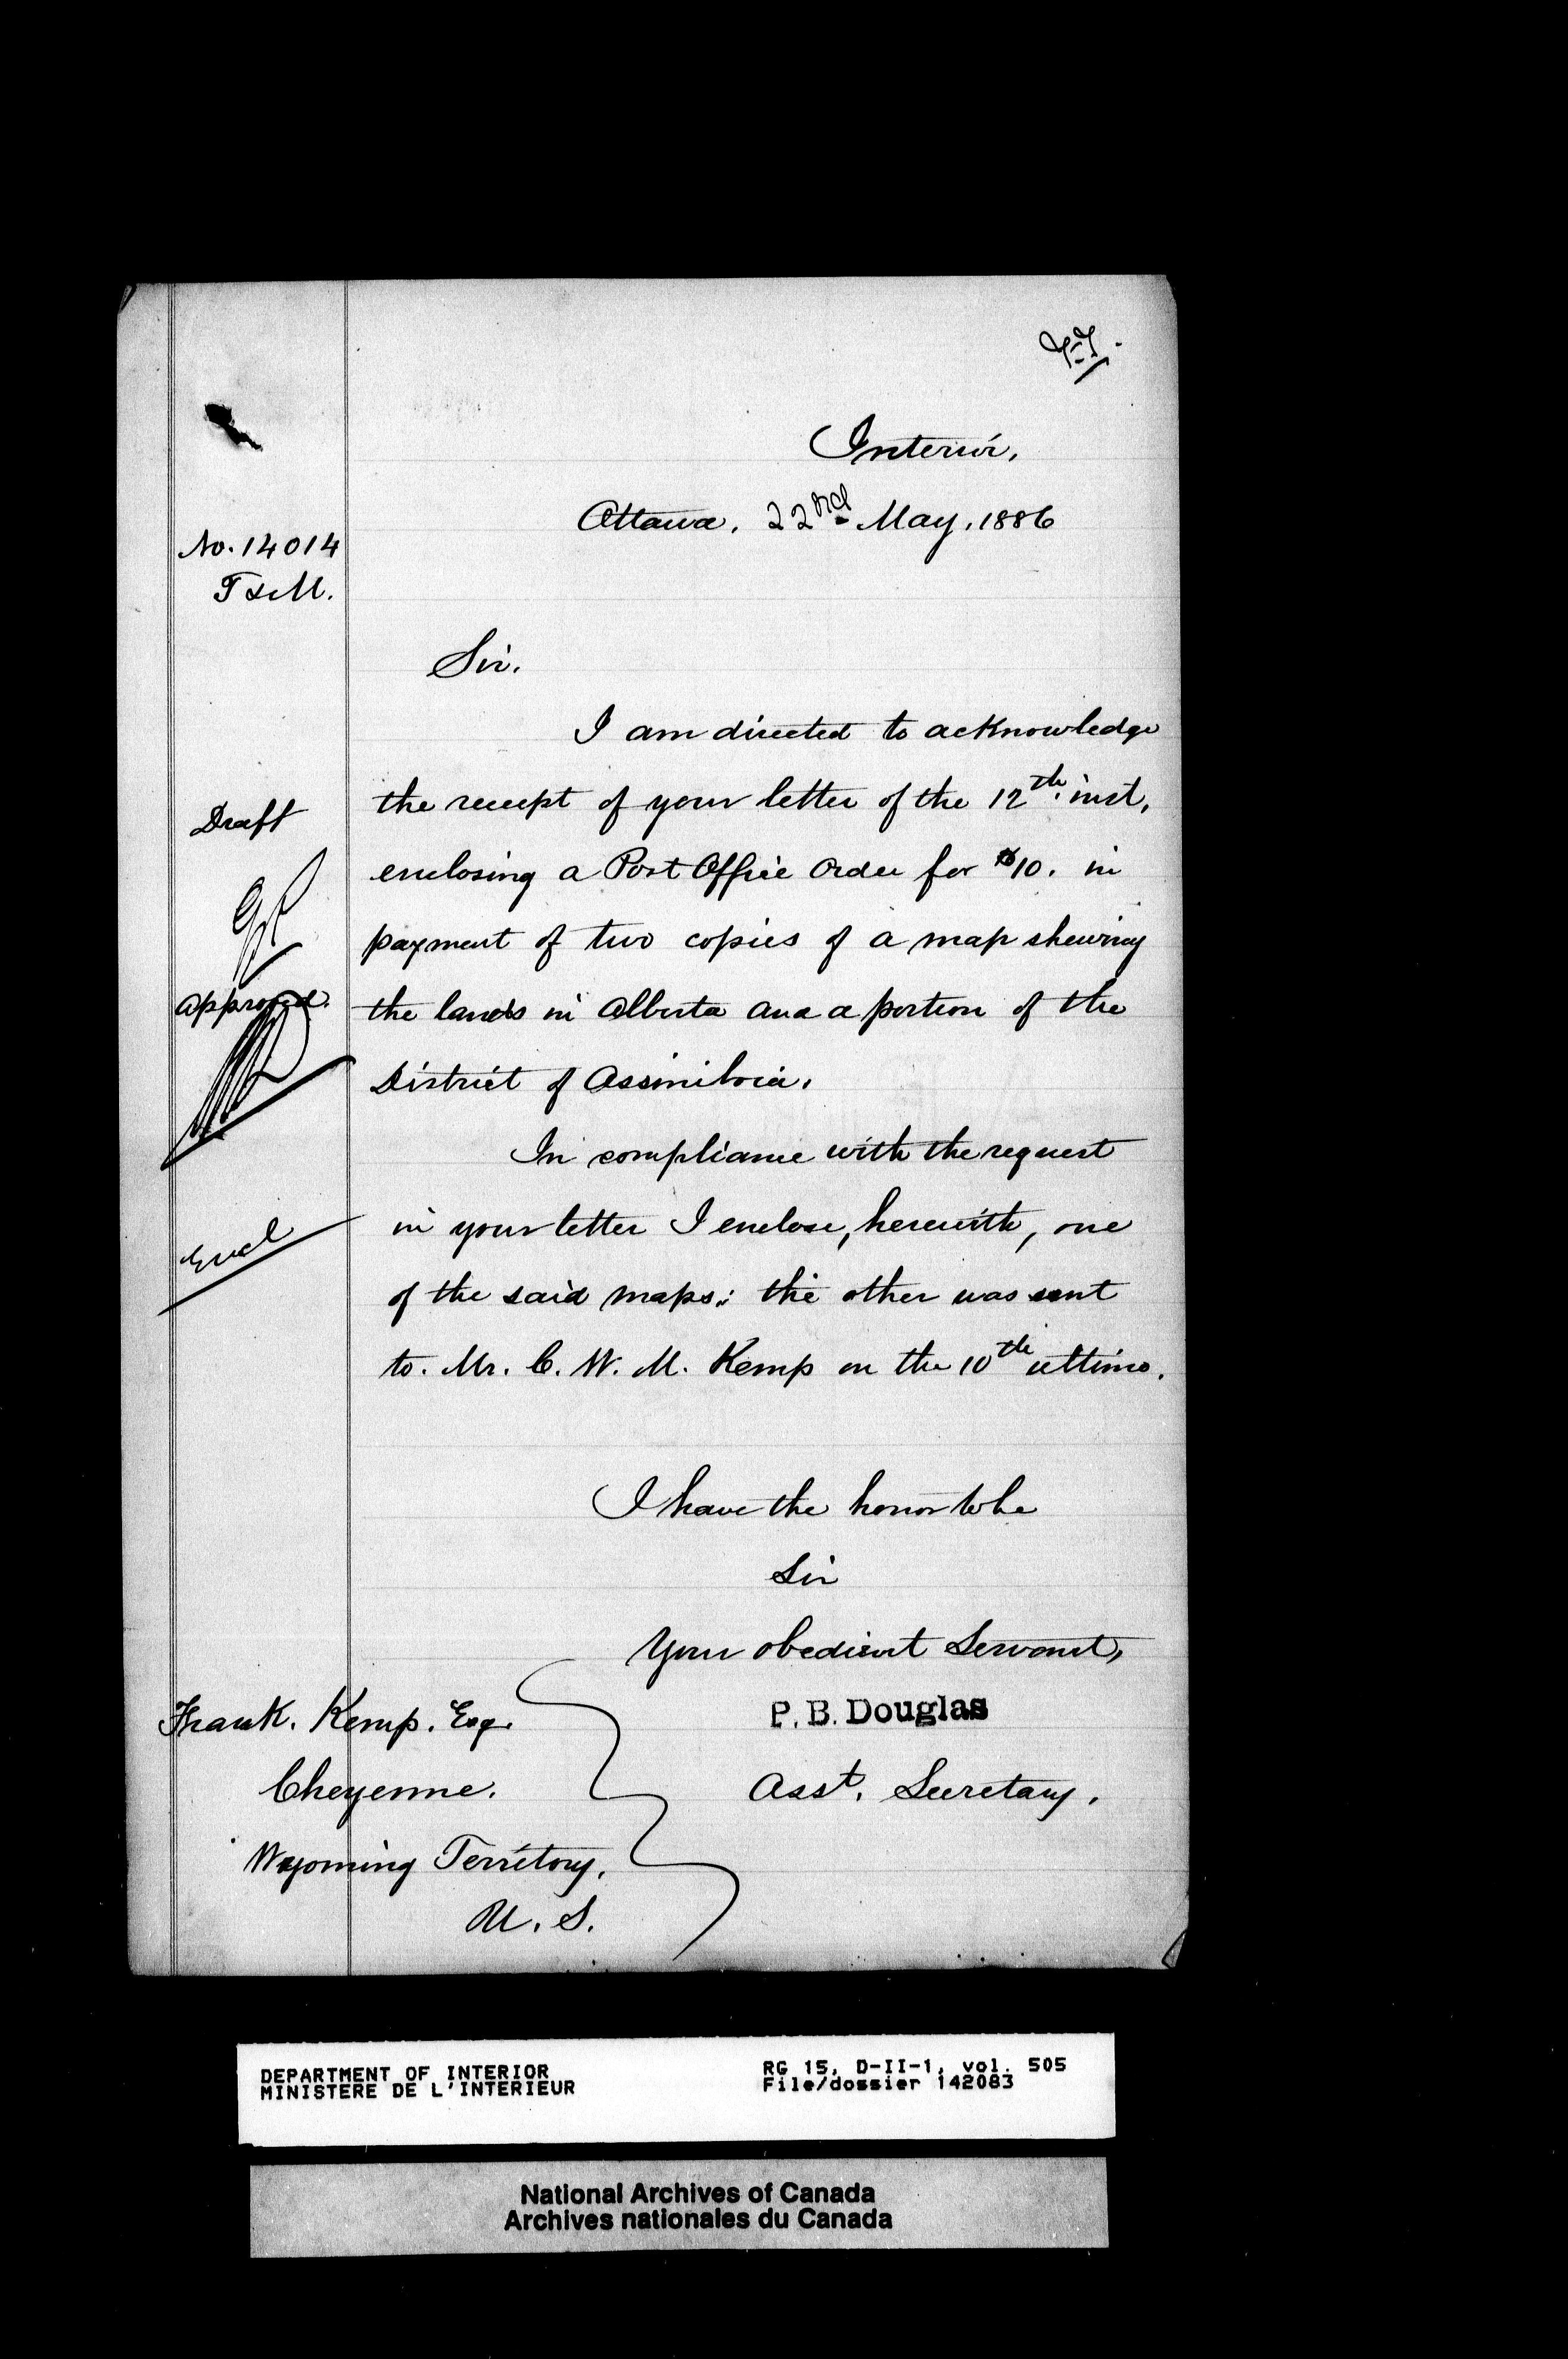 Interior,
Ottawa, 22nd May, 1886
No. 14014
T & M.
Sir.
I am directed to acknowledge
the receipt of your letter of the 12th. inst,
Draft
enclosing a Post Office Order for $10. in
payment of two copies of a map shewing
approved.
the lands in Alberta and a portion of the
District of Assiniboia.
In compliance with the request
in your letter I enclose, herewith, one
Encl
of the said maps: the other was sent
to. Mr. C. W. M. Kemp on the 10th ultimo.
I have the honor to be
Sir
Your obedient Servant,
P. B. Douglas
Asst. Secretary.
Frank. Kemp. Esq.
Cheyenne.
Wyoming Territory.
U. S.
DEPARTMENT OF INTERIOR
MINISTERE DE L'INTERIEUR
RG 15, D-II-1, vol. 505
File/dossier 142083
National Archives of Canada
Archives nationales du Canada